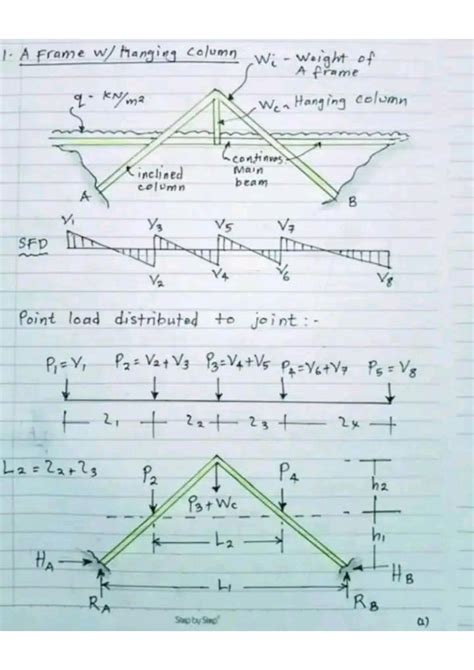 1. A Frame W/ Hanging Column
Wi - Weight of
A frame
q - KN/m²
Wc - Hanging column
continues
main
beam
inclined
column
A
B
V1
V3
V5
V7
SFD
V2
V4
V6
V8
Point load distributed to joint :-
P1=V1
P2=V2+V3
P3=V4+V5
P4=V6+V7
P5=V8
L2 = 22+23
P2
P4
P3+Wc
h2
h1
L2
HA
HB
L1
RA
RB
Step by Step
a)